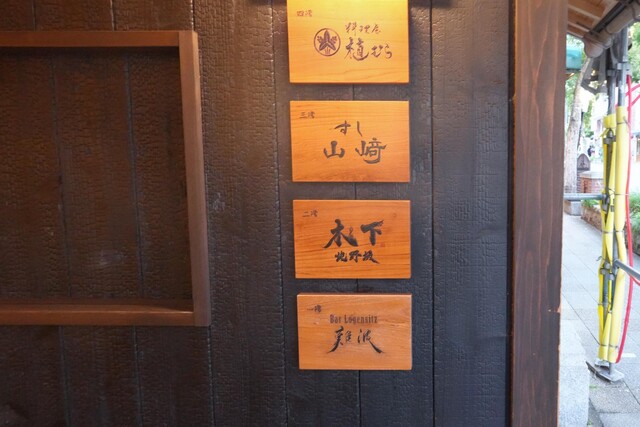 四湾
料理屋
植むら
三湾
すし
山﨑
二湾
木下
北野坂
一湾
Bar Logensitz
難波